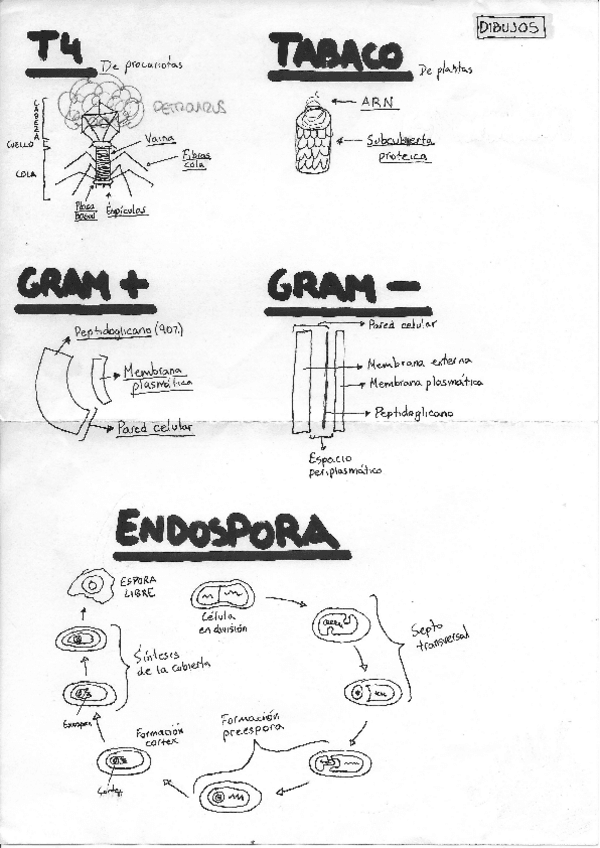 DIBUJOS
T4
De procariotas
CABEZA
CUELLO
COLA
Vaina
Fibras
cola
Placa
Basal
Espículas
TABACO
De plantas
ARN
Subcubierta
proteica
GRAM +
Peptidoglicano (90%)
Membrana
plasmática
Pared celular
GRAM −
Pared celular
Membrana externa
Membrana plasmática
Peptidoglicano
Espacio
periplasmático
ENDOSPORA
ESPORA
LIBRE
Célula
en división
Septo
transversal
Síntesis
de la cubierta
Formación
preespora
Formación
cortex
Cortex